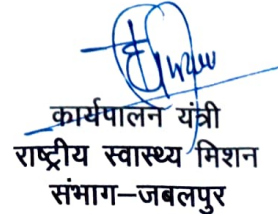 कार्यपालन यंत्री
राष्ट्रीय स्वास्थ्य मिशन
संभाग–जबलपुर